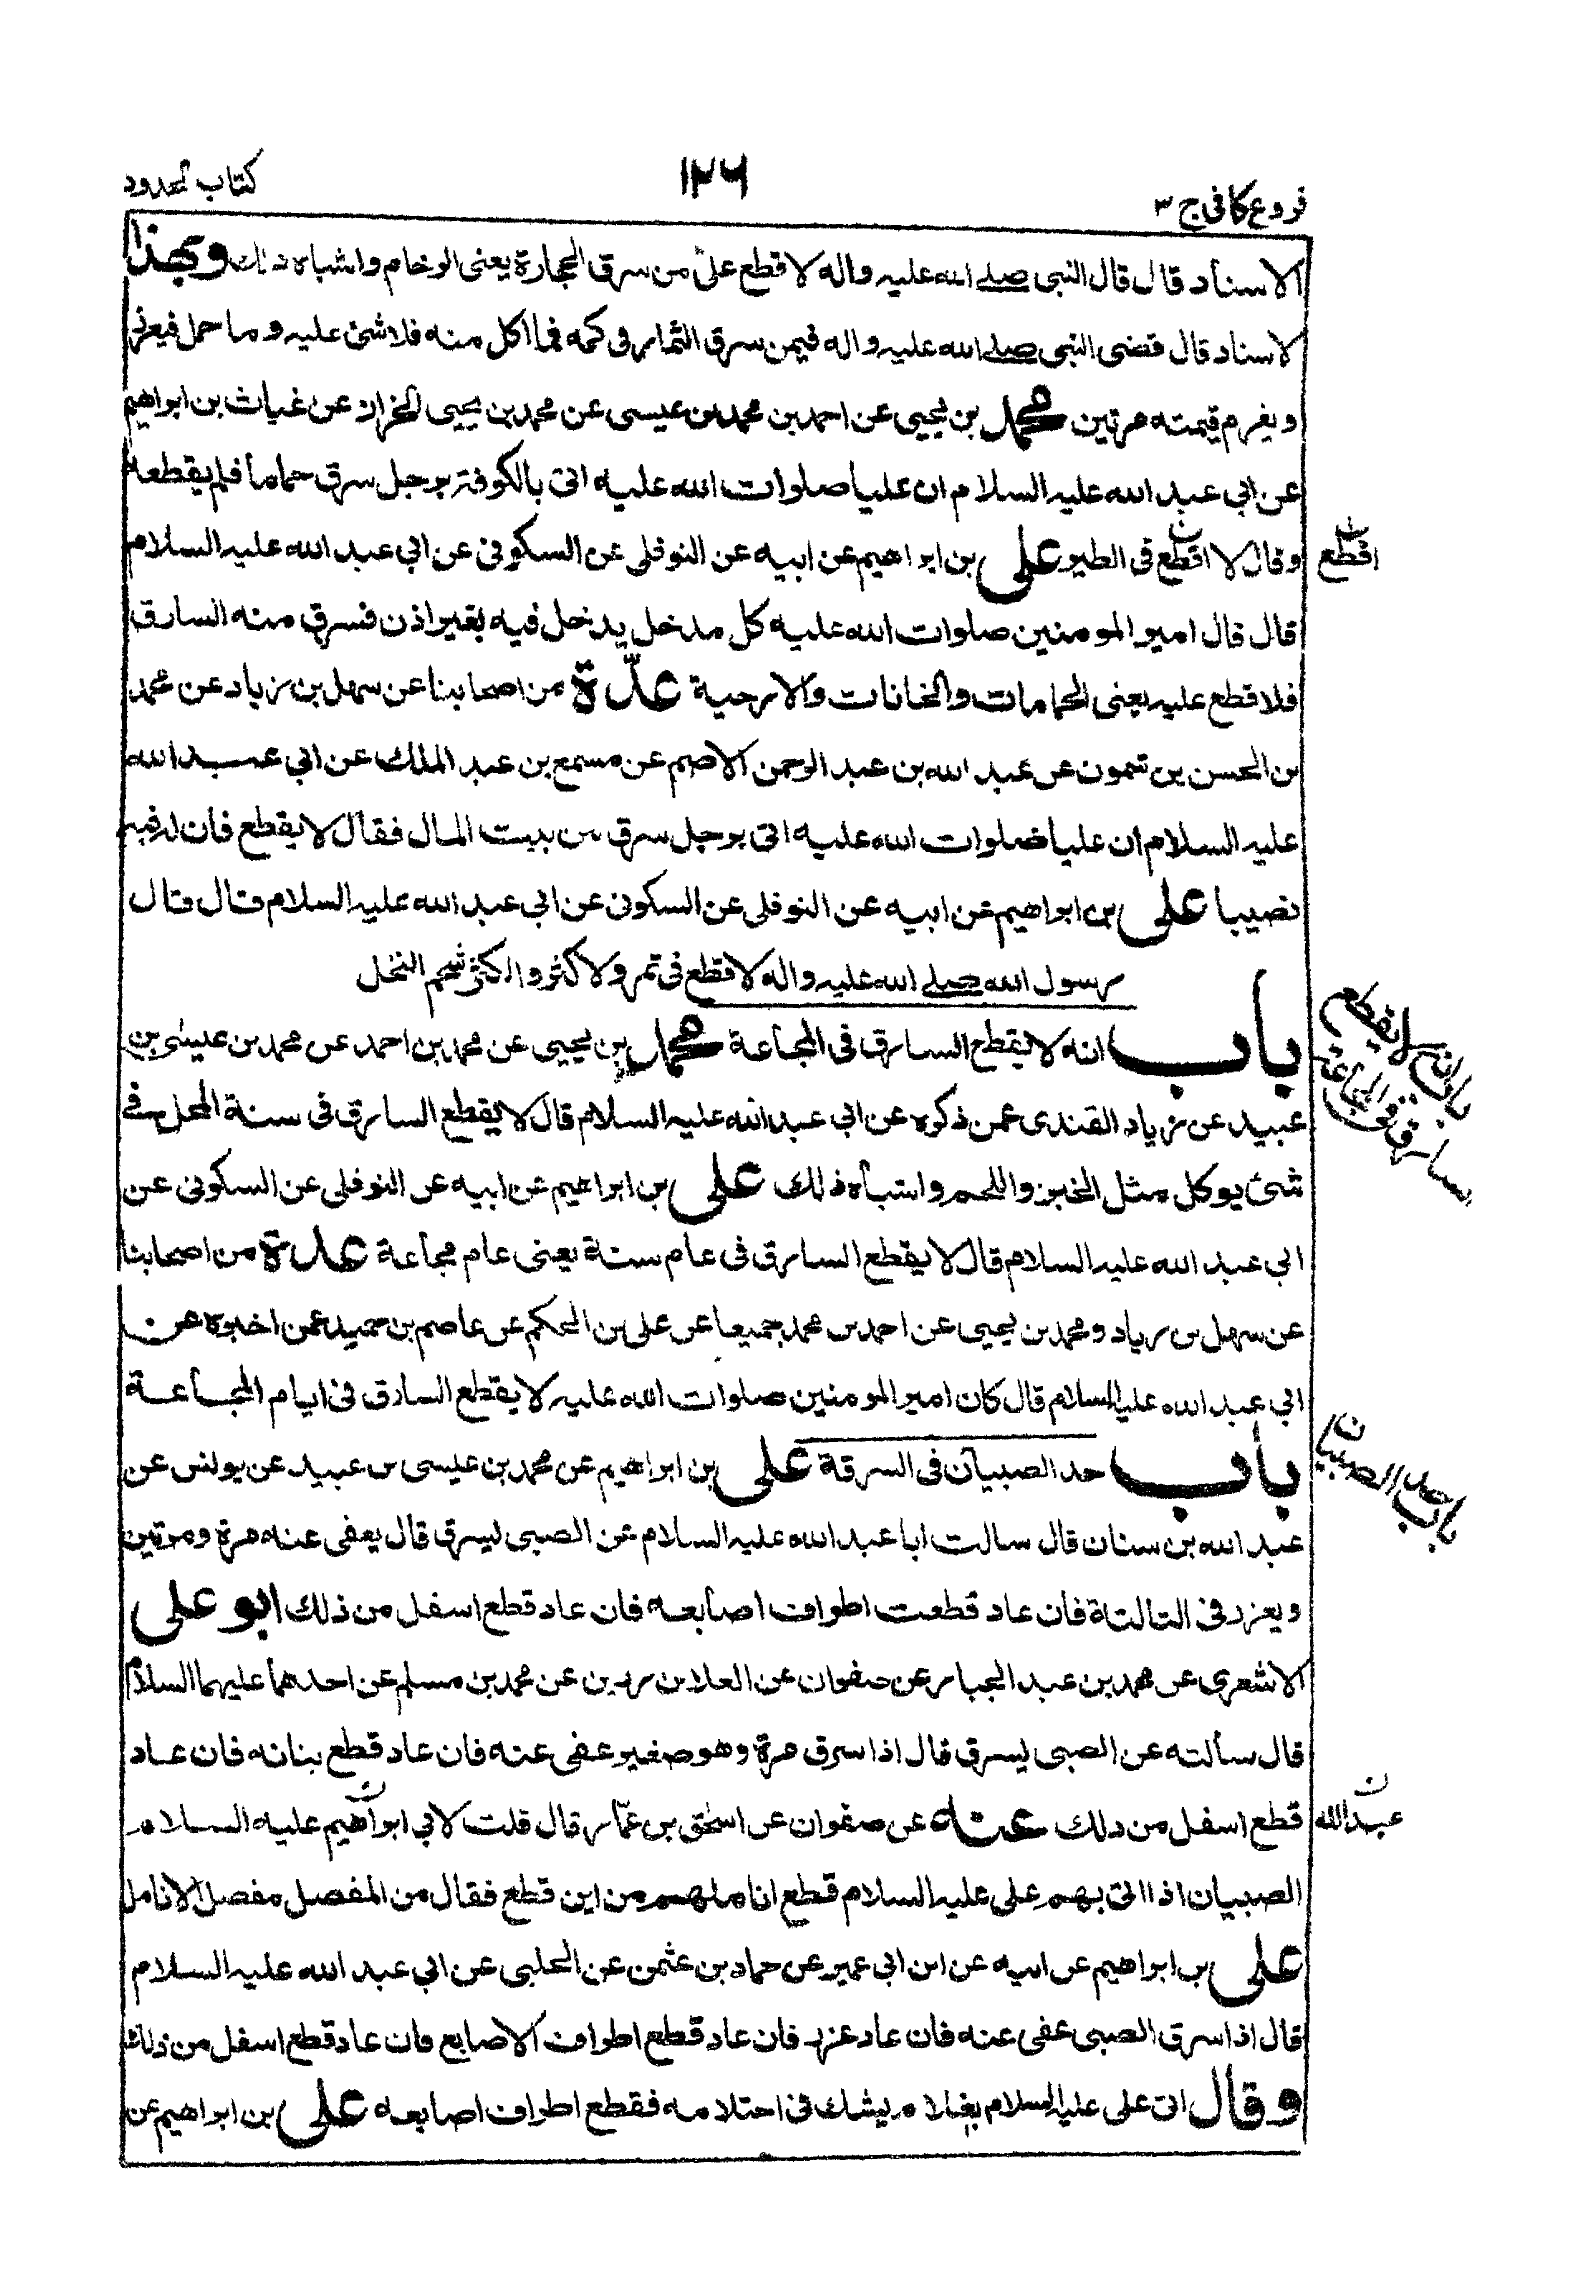 فروع كافي ج ٣
١٢٦
كتاب الحدود
الاسناد قال قال النبي صلى الله عليه واله لا قطع على من سرق الحجارة يعني الرخام واشباه ذلك وبهذا
الاسناد قال قضى النبي صلى الله عليه واله فيمن سرق الثمار في كمه فما اكل منه فلا شئ عليه وما حمل فيعزر
ويغرم قيمته مرتين محمد بن يحيى عن احمد بن محمد بن عيسى عن محمد بن يحيى الخزاز عن غياث بن ابراهيم
عن ابي عبد الله عليه السلام ان عليا صلوات الله عليه اتى بالكوفة برجل سرق حماما فلم يقطعه
وقال لا اقطع في الطير على بن ابراهيم عن ابيه عن النوفلى عن السكوني عن ابي عبد الله عليه السلام
اقطع
قال قال امير المومنين صلوات الله عليه كل مدخل يدخل فيه بغير اذن فسرق منه السارق
فلا قطع عليه يعني الحمامات والخانات والارحية عدّة من اصحابنا عن سهل بن زياد عن محمد
بن الحسن بن شمون عن عبد الله بن عبد الرحمن الاصم عن مسمع بن عبد الملك عن ابي عبد الله
عليه السلام ان عليا صلوات الله عليه اتى برجل سرق من بيت المال فقال لا يقطع فان له فيه
نصيبا على بن ابراهيم عن ابيه عن النوفلى عن السكوني عن ابي عبد الله عليه السلام قال قال
رسول الله صلى الله عليه واله لا قطع في تمر ولا كثر والكثر شحم النخل
باب انه لا يقطع السارق في المجاعة محمد بن يحيى عن محمد بن احمد عن محمد بن عيسى بن
باب انه لا يقطع
سارق في المجاعة
عبيد عن زياد القندى عمن ذكره عن ابي عبد الله عليه السلام قال لا يقطع السارق في سنة المحل في
شئ يوكل مثل الخبز واللحم واشباه ذلك على بن ابراهيم عن ابيه عن النوفلى عن السكوني عن
ابي عبد الله عليه السلام قال لا يقطع السارق في عام سنة يعني عام مجاعة عدة من اصحابنا
عن سهل بن زياد ومحمد بن يحيى عن احمد بن محمد جميعا عن على بن الحكم عن عاصم بن حميد عمن اخبره عن
ابي عبد الله عليه السلام قال كان امير المومنين صلوات الله عليه لا يقطع السارق في ايام المجاعة
باب حد الصبيان في السرقة على بن ابراهيم عن محمد بن عيسى بن عبيد عن يونس عن
باب حد الصبيان
عبد الله بن سنان قال سالت ابا عبد الله عليه السلام عن الصبى يسرق قال يعفى عنه مرة ومرتين
ويعزر في الثالثة فان عاد قطعت اطراف اصابعه فان عاد قطع اسفل من ذلك ابو على
الاشعرى عن محمد بن عبد الجبار عن صفوان عن العلا بن رزين عن محمد بن مسلم عن احدهما عليهما السلام
قال سألته عن الصبى يسرق قال اذا سرق مرة وهو صغير عفى عنه فان عاد قطع بنانه فان عاد
قطع اسفل من ذلك عنه عن صفوان عن اسحق بن عمّار قال قلت لابي ابراهيم عليه السلام
عبد الله
الصبيان اذا اتى بهم على عليه السلام قطع اناملهم من اين قطع فقال من المفصل مفصل الانامل
على بن ابراهيم عن ابيه عن ابن ابي عمير عن حماد بن عثمن عن الحلبى عن ابي عبد الله عليه السلام
قال اذا سرق الصبى عفى عنه فان عاد عزر فان عاد قطع اطراف الاصابع فان عاد قطع اسفل من ذلك
وقال اتى على عليه السلام بغلام يشك في احتلامه فقطع اطراف اصابعه على بن ابراهيم عن